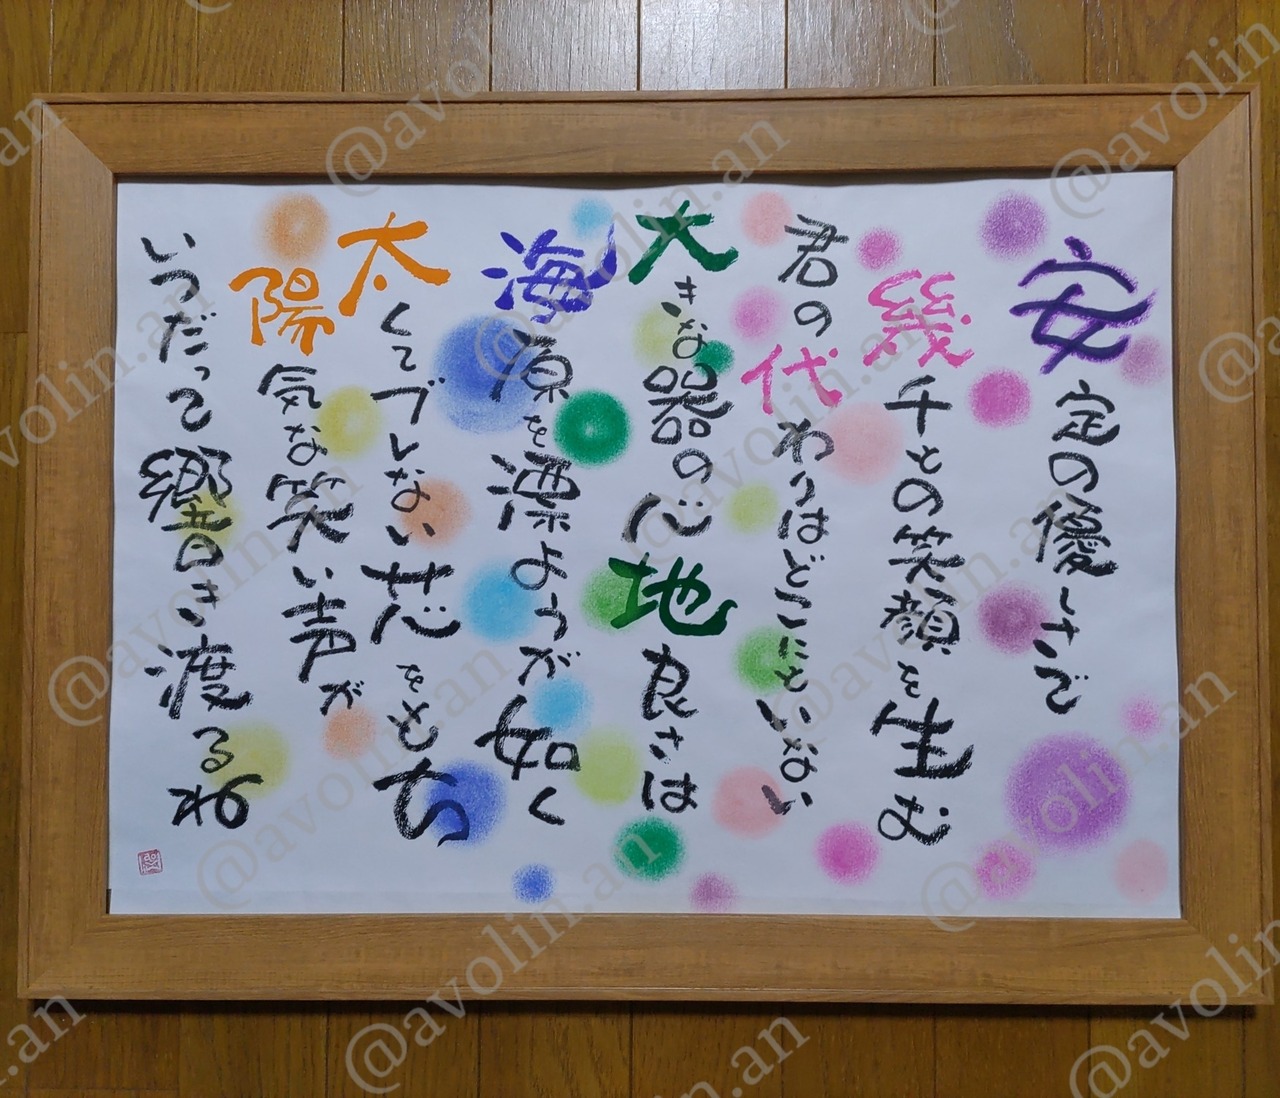 安定の優しさで
幾千との笑顔を生む
君の代わりはどこにもいない
大きな器の心地良さは
海原を漂ようが如く
太くてブレない芯をもち
陽気な笑い声が
いつだって響き渡るね
@avolin.an